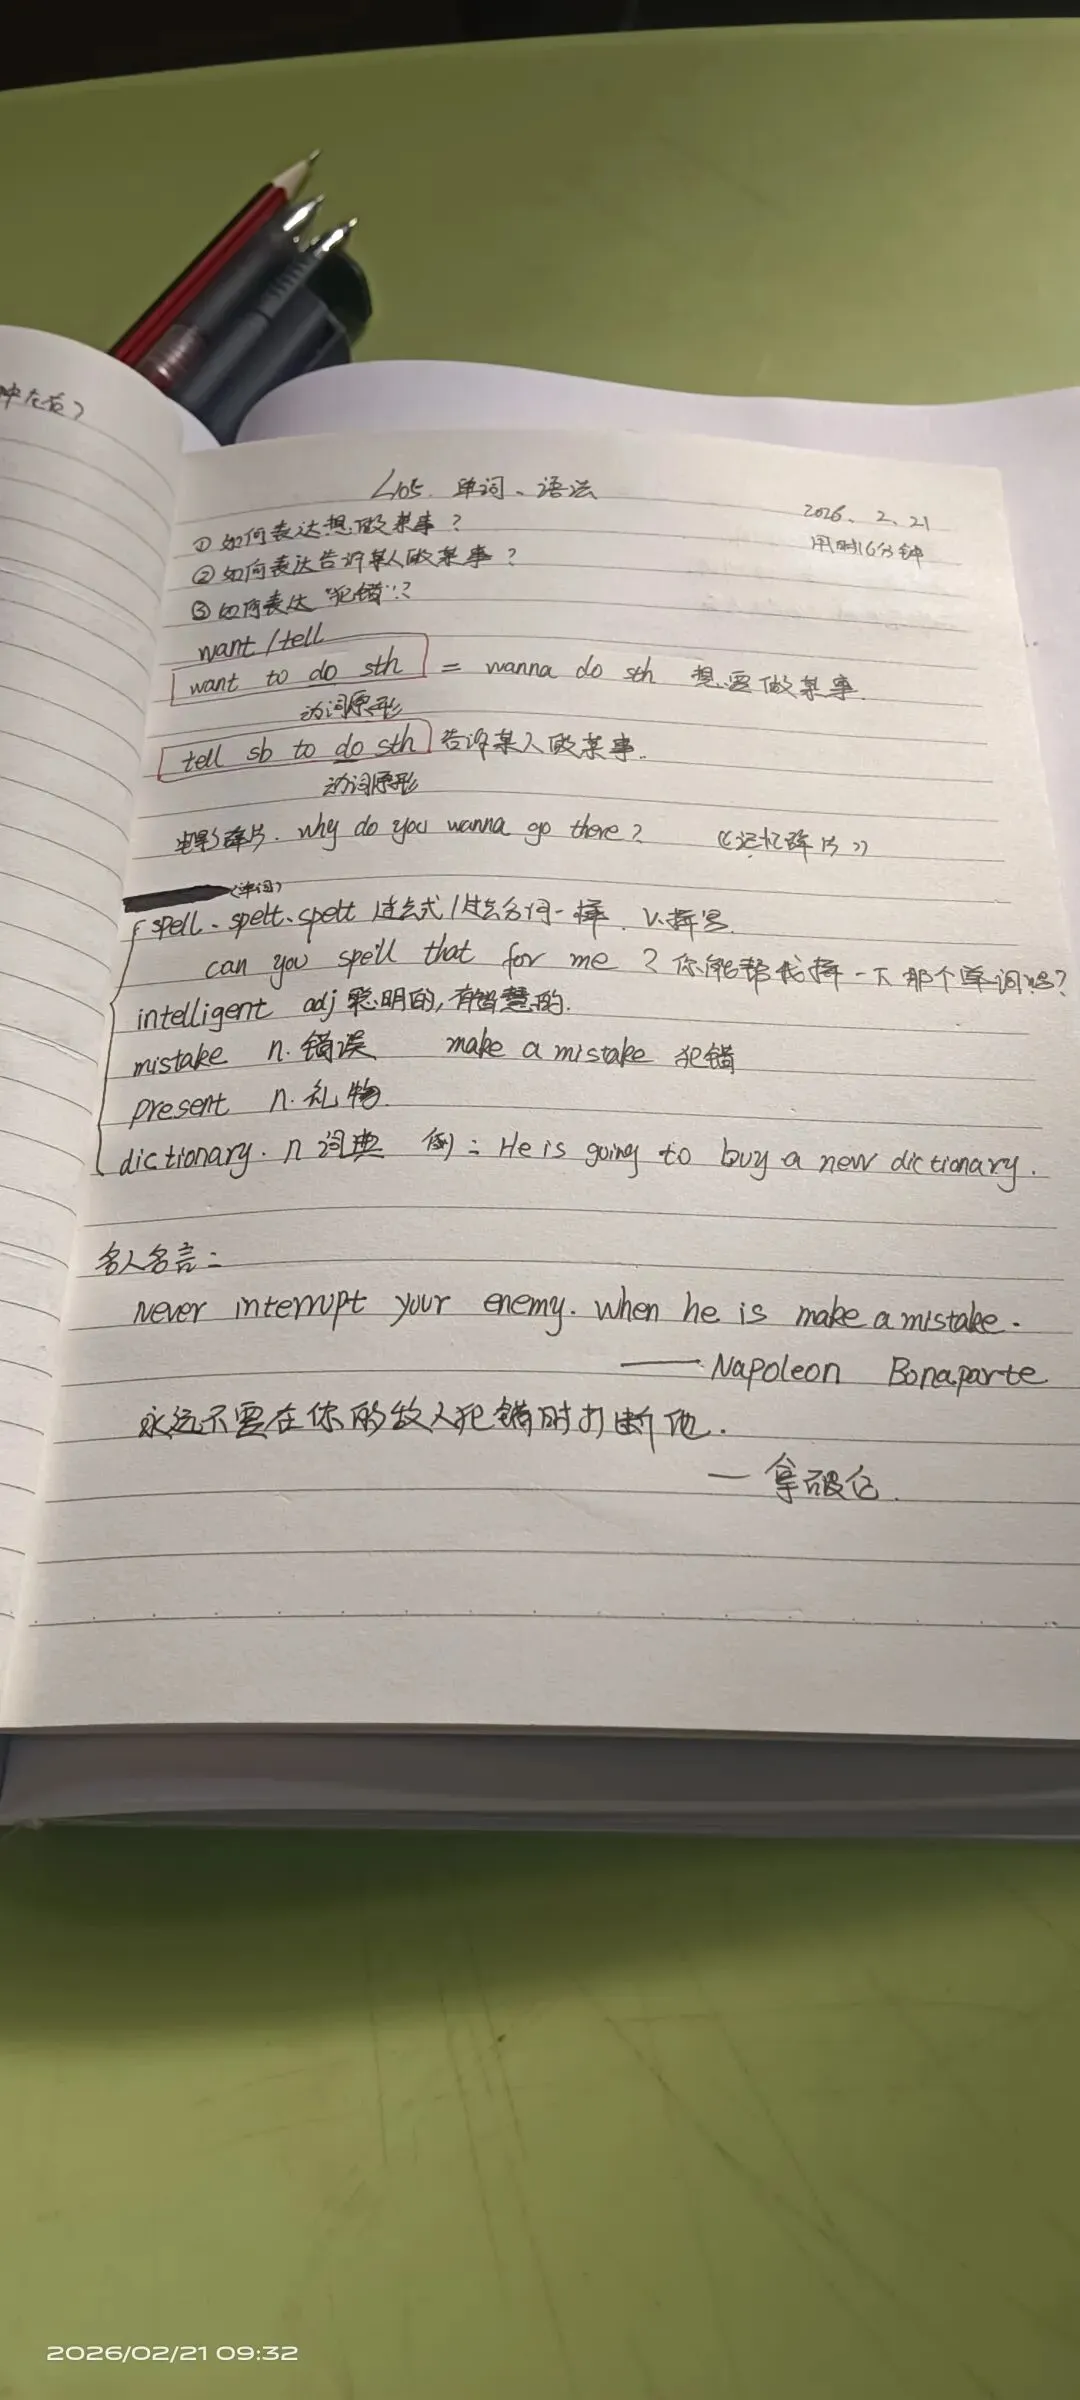 中左右)
L105. 单词、语法
2026、2、21
用时16分钟
① 如何表达想做某事?
② 如何表达告诉某人做某事?
③ 如何表达"犯错"?
want / tell
want to do sth = wanna do sth 想要做某事.
动词原形
tell sb to do sth 告诉某人做某事.
动词原形
电影碎片. why do you wanna go there? 《记忆碎片》
(单词)
spell、spelt、spelt 过去式/过去分词一样 v.拼写.
can you spell that for me? 你能帮我拼一下那个单词吗?
intelligent adj 聪明的,有智慧的.
mistake n. 错误 make a mistake 犯错
present n. 礼物.
dictionary. n 词典 例: He is going to buy a new dictionary.
名人名言:
Never interrupt your enemy. when he is make a mistake.
—— Napoleon Bonaparte
永远不要在你的敌人犯错时打断他.
— 拿破仑.
2026/02/21 09:32